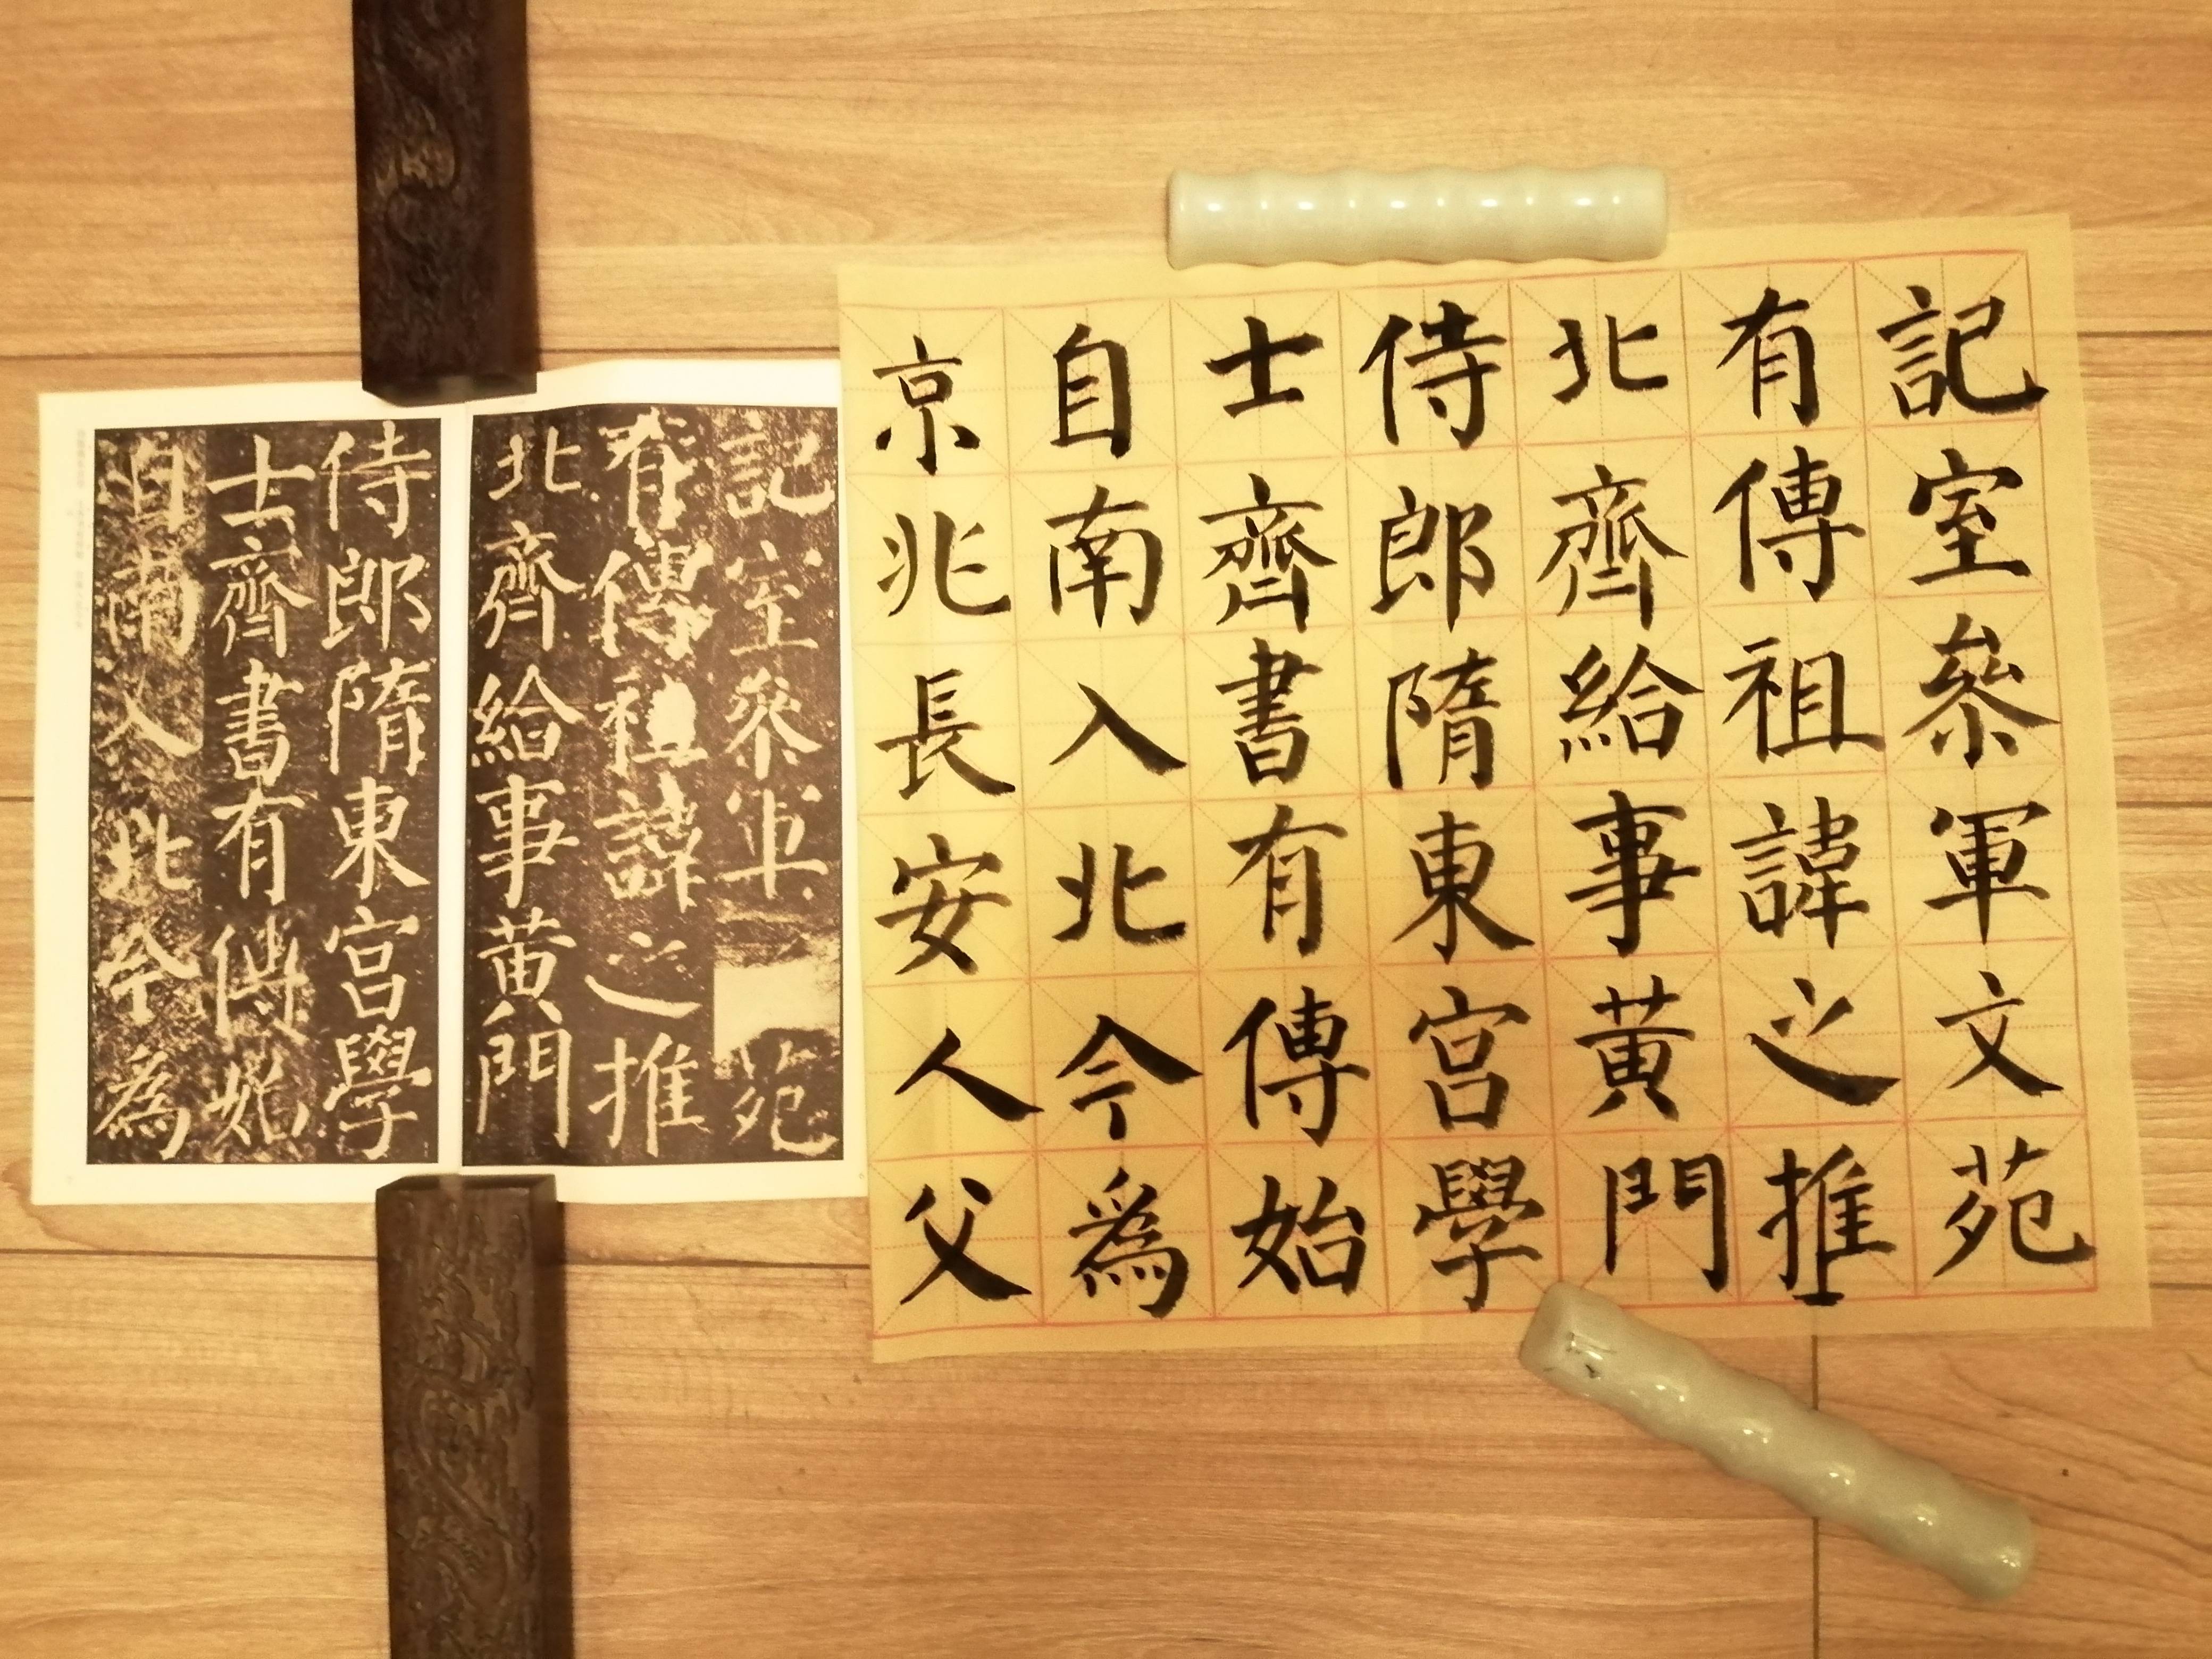 記室參軍文苑
有傳祖諱之推
北齊給事黃門
侍郎隋東宮學
士齊書有傳始
自南入北今為
京兆長安人父
記室參軍苑
有傳祖諱之推
北齊給事黃門
侍郎隋東宮學
士齊書有傳始
自南入北今為